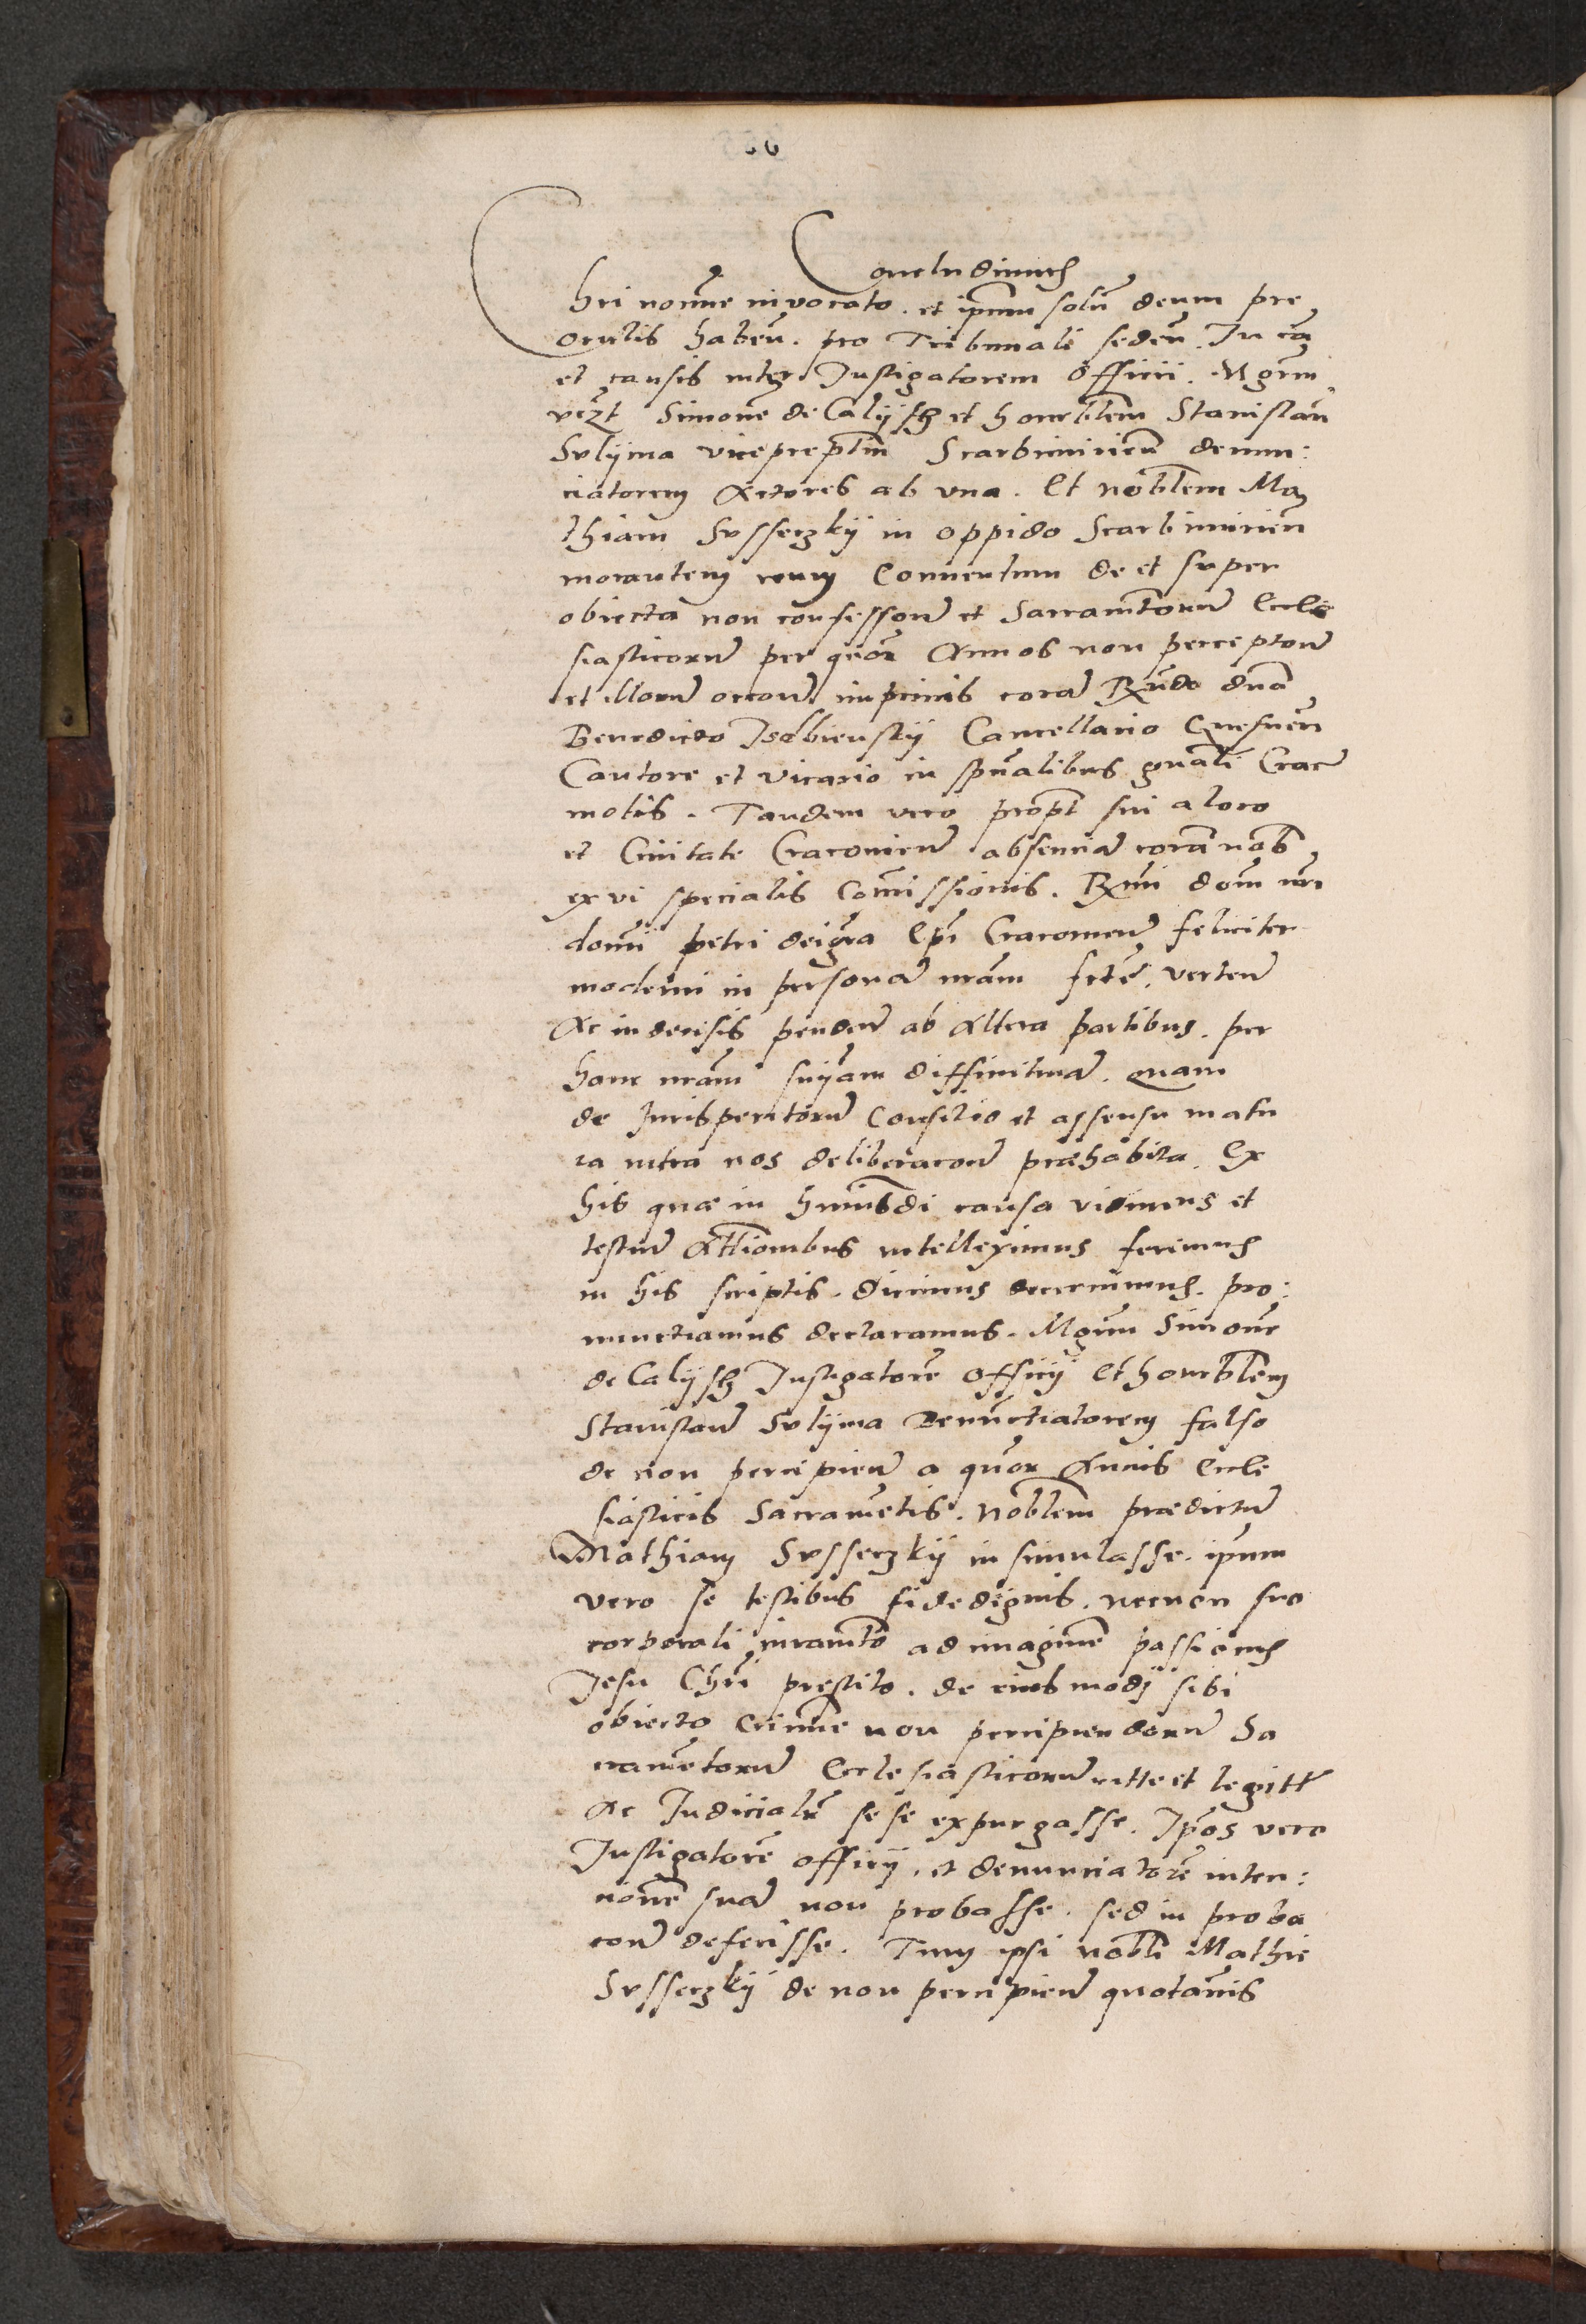 Concludimus
Chri nomine invocato. et ipsum solu deum pre
oculis haben. pro Tribunali seden. In ca
et causis inter Instigatorem Officii. Mgrm
vczt Simone de Calijsch et honorblem Stanislau
Sulijma vicepreptm Scarbimirien denun:
ciatorem Actores ab vna. Et noblem Ma
thiam Susserzkij in oppido Scarbimirien
morantem reum Conventum de et super
obiecta non confession et Sacramtorum Eccle
siasticorum per qtuor Annos non perception
et illorum occon imprimis cora Rndo dno
Benedicto Isdbienskij Cancellario Gnesnen
Cantore et vicario in spualibus gnali Crac
motis. Tandem vero propt sui a loco
et Civitate Cracovien absencia cora nob
ex vi specialis Commissionis. Rxmi dom nri
domi petri dei gra Epi Cracovien feliciter
moderni in persona nram fcte. verten
Ac indecisis penden ab Altera partibus. per
hanc nram sniam diffinitiva. quam
de Iurisperitorum Consilio et assensu matu
ra intra nos deliberacone præhabita. Ex
his quæ in huiusdi causa vidimus et
testium Attionibus intelleximus ferimus
in his scriptis. dicimus decernimus. pro:
nunctiamus declaramus. Mgrum Simone
de Calijsch Instigatore Officij Et honorblem
Stanislaum Sulijma Denunctiatorem falso
de non percipien a quor Annis Eccle
siasticis Sacrametis. Noblem prædictum
Mathiam Susserzkij insimulasse. ipsum
vero se testibus fidedignis. necnon suo
corporali iuramto ad imagine passionis
Jesu Chri prestito. de eiusmodj sibi
obiecto Crimine non percipiendorum Sa
crametorum Ecclesiasticorum ritte et legitt
Ac Judicialr se se expurgasse. Ipos vero
Instigatore officij. et denunciatore inten:
cione suam non probasse. sed in proba
cone defecisse. Tum ipsi nobli Mathie
Susserzkij de non percipien quotannis